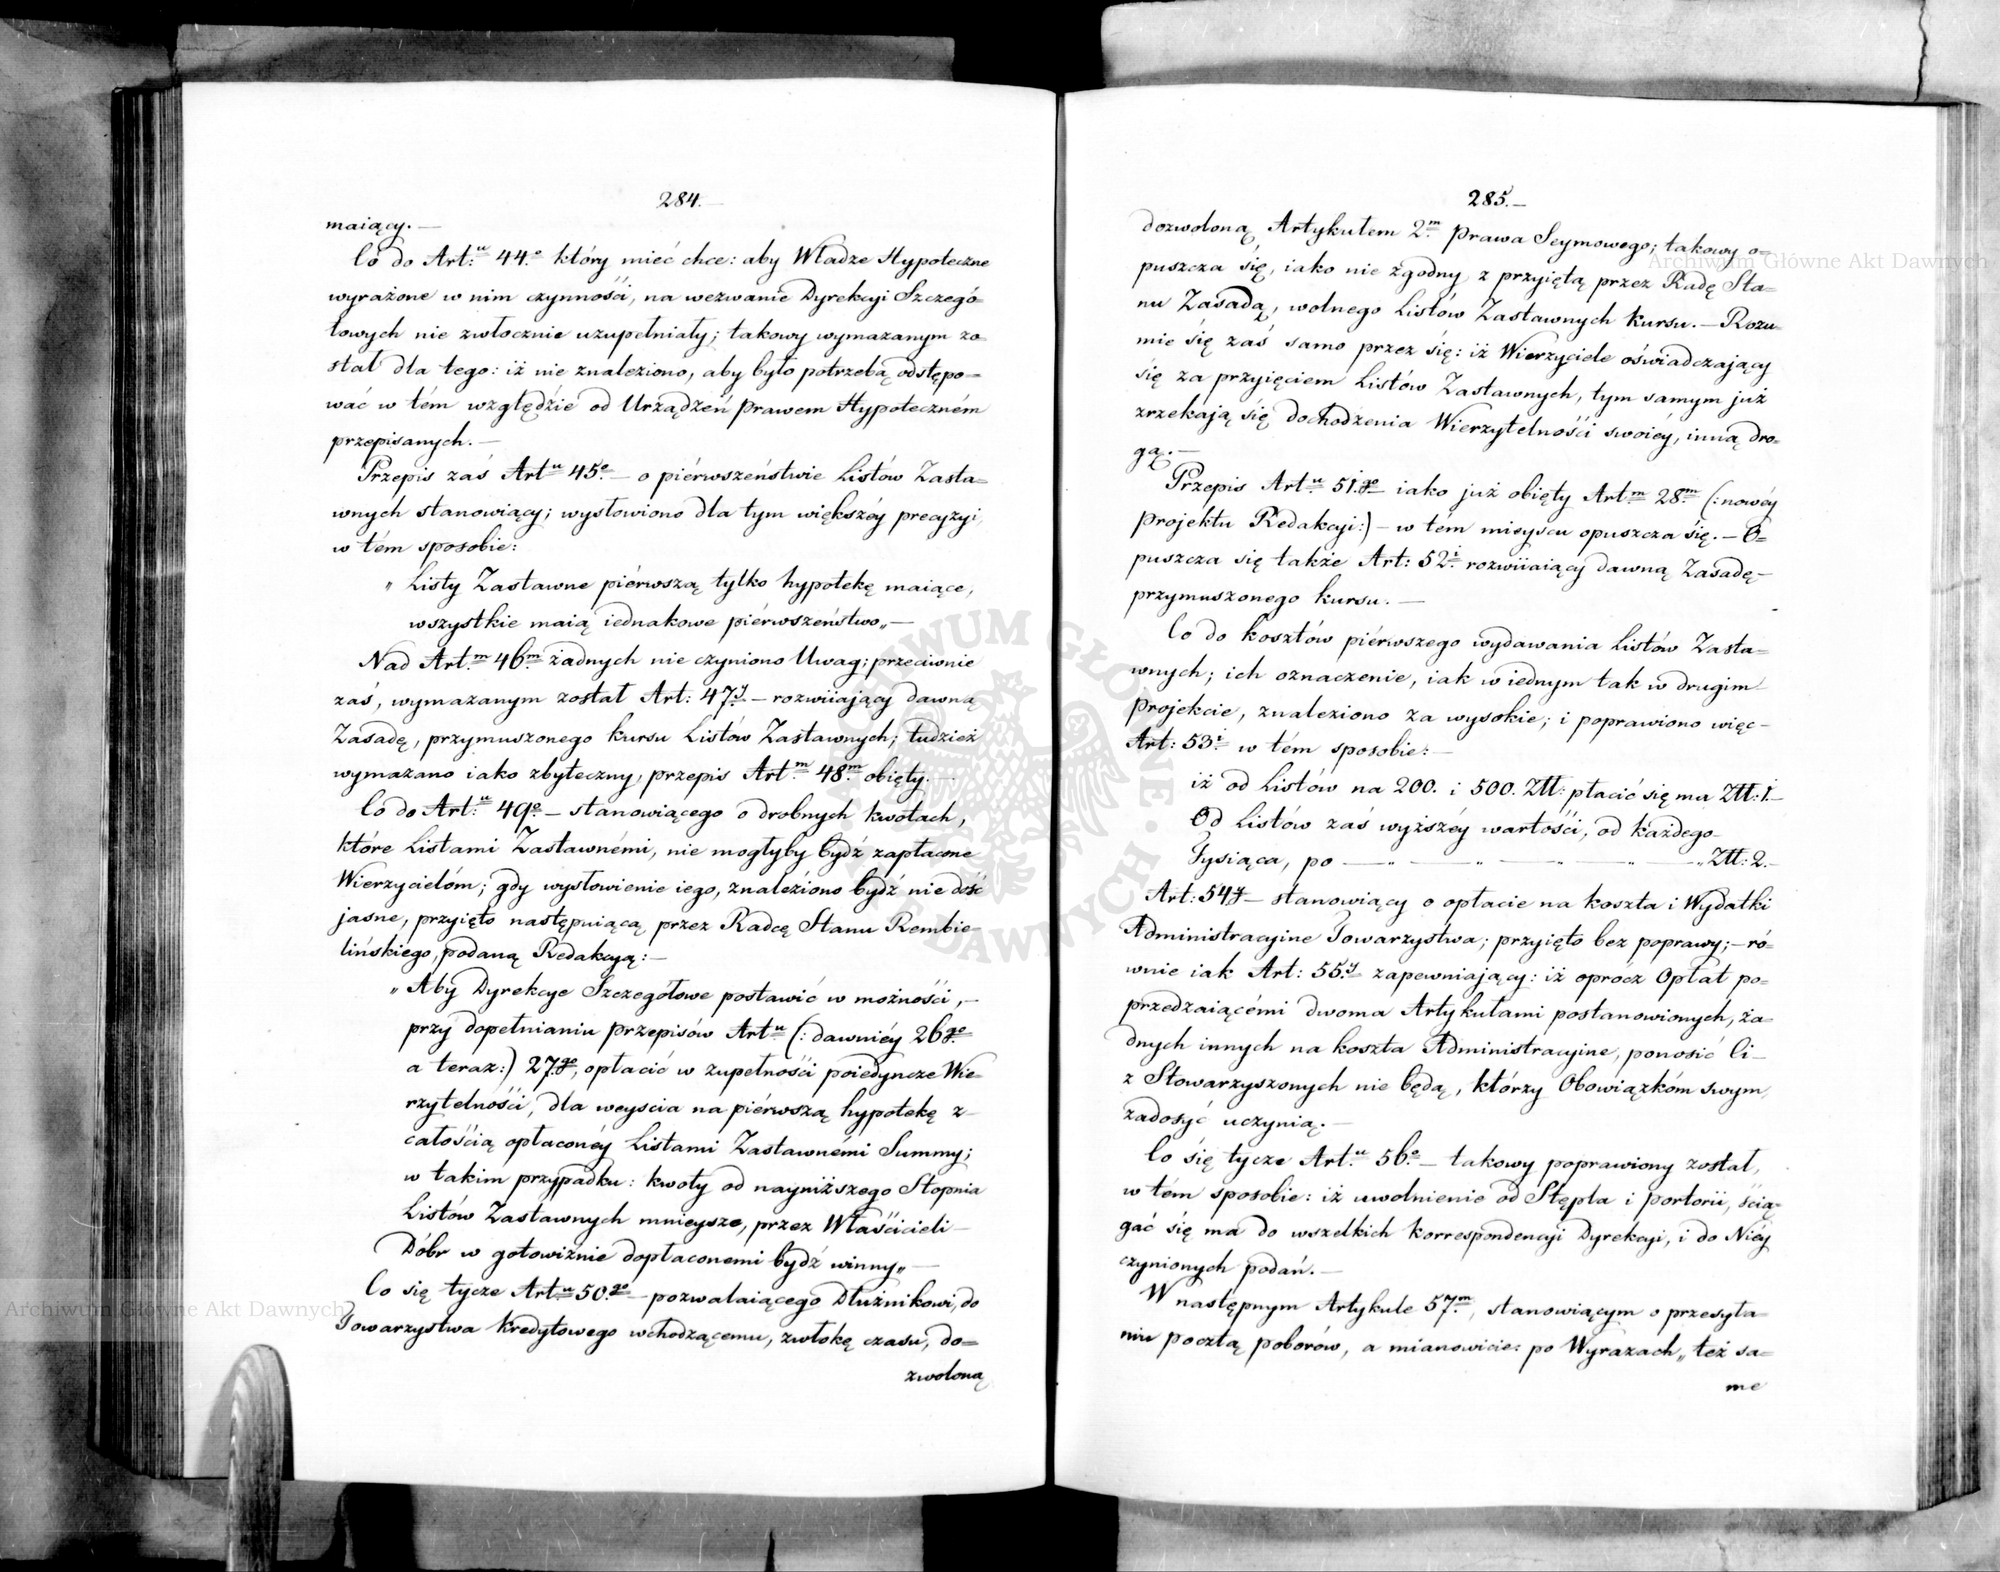 284.—
maiący.—
Co do Art:u 44.o który mieć chce: aby Władze Hypoteczne
wyrażone w nim czynności, na wezwanie Dyrekcji Szczegó=
łowych nie zwłocznie uzupełniały; takowy wymazanym zo=
stał dla tego: iż nie znaleziono, aby było potrzebą odstępo=
wać w tém względzie od Urządzeń Prawem Hypoteczném
przepisanych.—
Przepis zaś Artu 45o— o piérwszeństwie Listów Zasta=
wnych stanowiący; wysłowiono dla tym większéy precyzyi,
w tém sposobie:
„ Listy Zastawne piérwszą tylko hypotekę maiące,
wszystkie maią iednakowe piérwszeństwo„—
Nad Art.m 46m żadnych nie czyniono Uwag; przeciwnie
zaś, wymazanym został Art: 47y— rozwiiaiący dawną
Zasadę, przymuszonego kursu Listów Zastawnych; tudzież
wymazano iako zbyteczny, przepis Art.m 48m. obięty.—
Co do Art:u 49o— stanowiącego o drobnych kwotach,
które Listami Zastawnémi, nie mogłyby bydź zapłacone
Wierzycielóm; gdy wysłowienie iego, znaleziono bydź nie dość
jasne, przyięto następuiącą, przez Radcę Stanu Rembie=
lińskiego, podaną Redakcyą:—
„ Aby Dyrekcye Szczegółowe postawić w możności,—
przy dopełnianiu przepisów Artu (: dawniéy 26go
a teraz:) 27.go, opłacić w zupełności poiedyncze Wie=
rzytelności, dla weyścia na piérwszą hypotekę z—
całością opłaconéy Listami Zastawnémi Summy;
w takim przypadku: kwoty od nayniższego Stopnia
Listów Zastawnych mnieysze, przez Właścicieli—
Dóbr w gotowiźnie dopłaconemi bydź winny„—
Co się tycze Art.u 50.go— pozwalaiącego Dłużnikowi, do
Towarzystwa Kredytowego wchodzącemu, zwłokę czasu, do=
zwoloną
285.—
dozwoloną Artykułem 2m. Prawa Seymowego; takowy o=
puszcza się, iako nie zgodny z przyiętą przez Radę Sta=
nu Zasadą, wolnego Listów Zastawnych kursu.—Rozu=
mie się zaś samo przez się: iż Wierzyciele oświadczający
się za przyięciem Listów Zastawnych, tym samym już
zrzekają się dochodzenia Wierzytelności swoiéy, inną dro=
gą.—
Przepis Art:u 51.go— iako już obięty Artm 28m. (:nowéy
Projektu Redakcyi:)— w tém mieyscu opuszcza się.—O=
puszcza się także Art: 52i. rozwiiaiący dawną Zasadę—
przymuszonego kursu.—
Co do kosztów piérwszego wydawania Listów Zasta=
wnych; ich oznaczenie, iak w iednym tak w drugim—
Projekcie, znaleziono za wysokie; i poprawiono więc—
Art: 53i. w tém sposobie:—
iż od Listów na 200. i 500. Złł: płacić się ma Złł: 1.—
Od Listów zaś wyższéy wartości, od każdego—
Tysiąca, po — „ — „ — „ — „ — „ Złł: 2.—
Art: 54y— stanowiący o opłacie na koszta i Wydatki
Administracyine Towarzystwa; przyięto bez poprawy;—ró=
wnie iak Art: 55.y zapewniający: iż oprócz Opłat po=
przedzaiącémi dwoma Artykułami postanowionych, ża=
dnych innych na koszta Administracyine, ponosić Ci—
z Stowarzyszonych nie będą, którzy Obowiązkóm swym,
zadosyć uczynią.—
Co się tycze Art.u 56o.— takowy poprawiony został,
w tém sposobie: iż uwolnienie od Stępla i portorii, ścią=
gać się ma do wszelkich korrespondencji Dyrekcji, i do Niéy
czynionych podań.—
W następnym Artykule 57m., stanowiącym o przesyła=
niu pocztą poborów, a mianowicie: po Wyrazach„ też sa=
me
Archiwum Główne Akt Dawnych
Archiwum Główne Akt Dawnych
ARCHIWUM GŁÓWNE AKT DAWNYCH